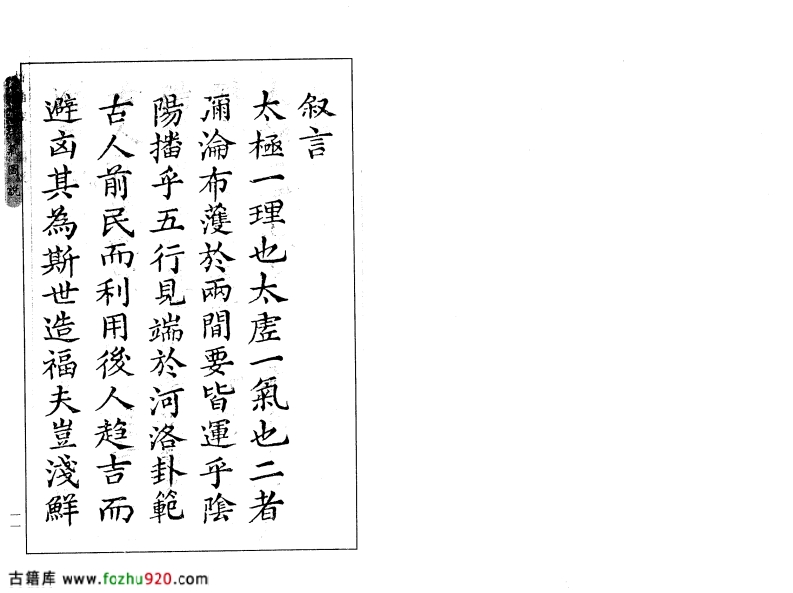 叙言
太極一理也太虛一氣也二者
彌淪布濩於兩間要皆運乎陰
陽播乎五行見端於河洛卦範
古人前民而利用後人趋吉而
避凶其為斯世造福夫豈淺鮮
氣圖說
一一
古籍库 www.fozhu920.com